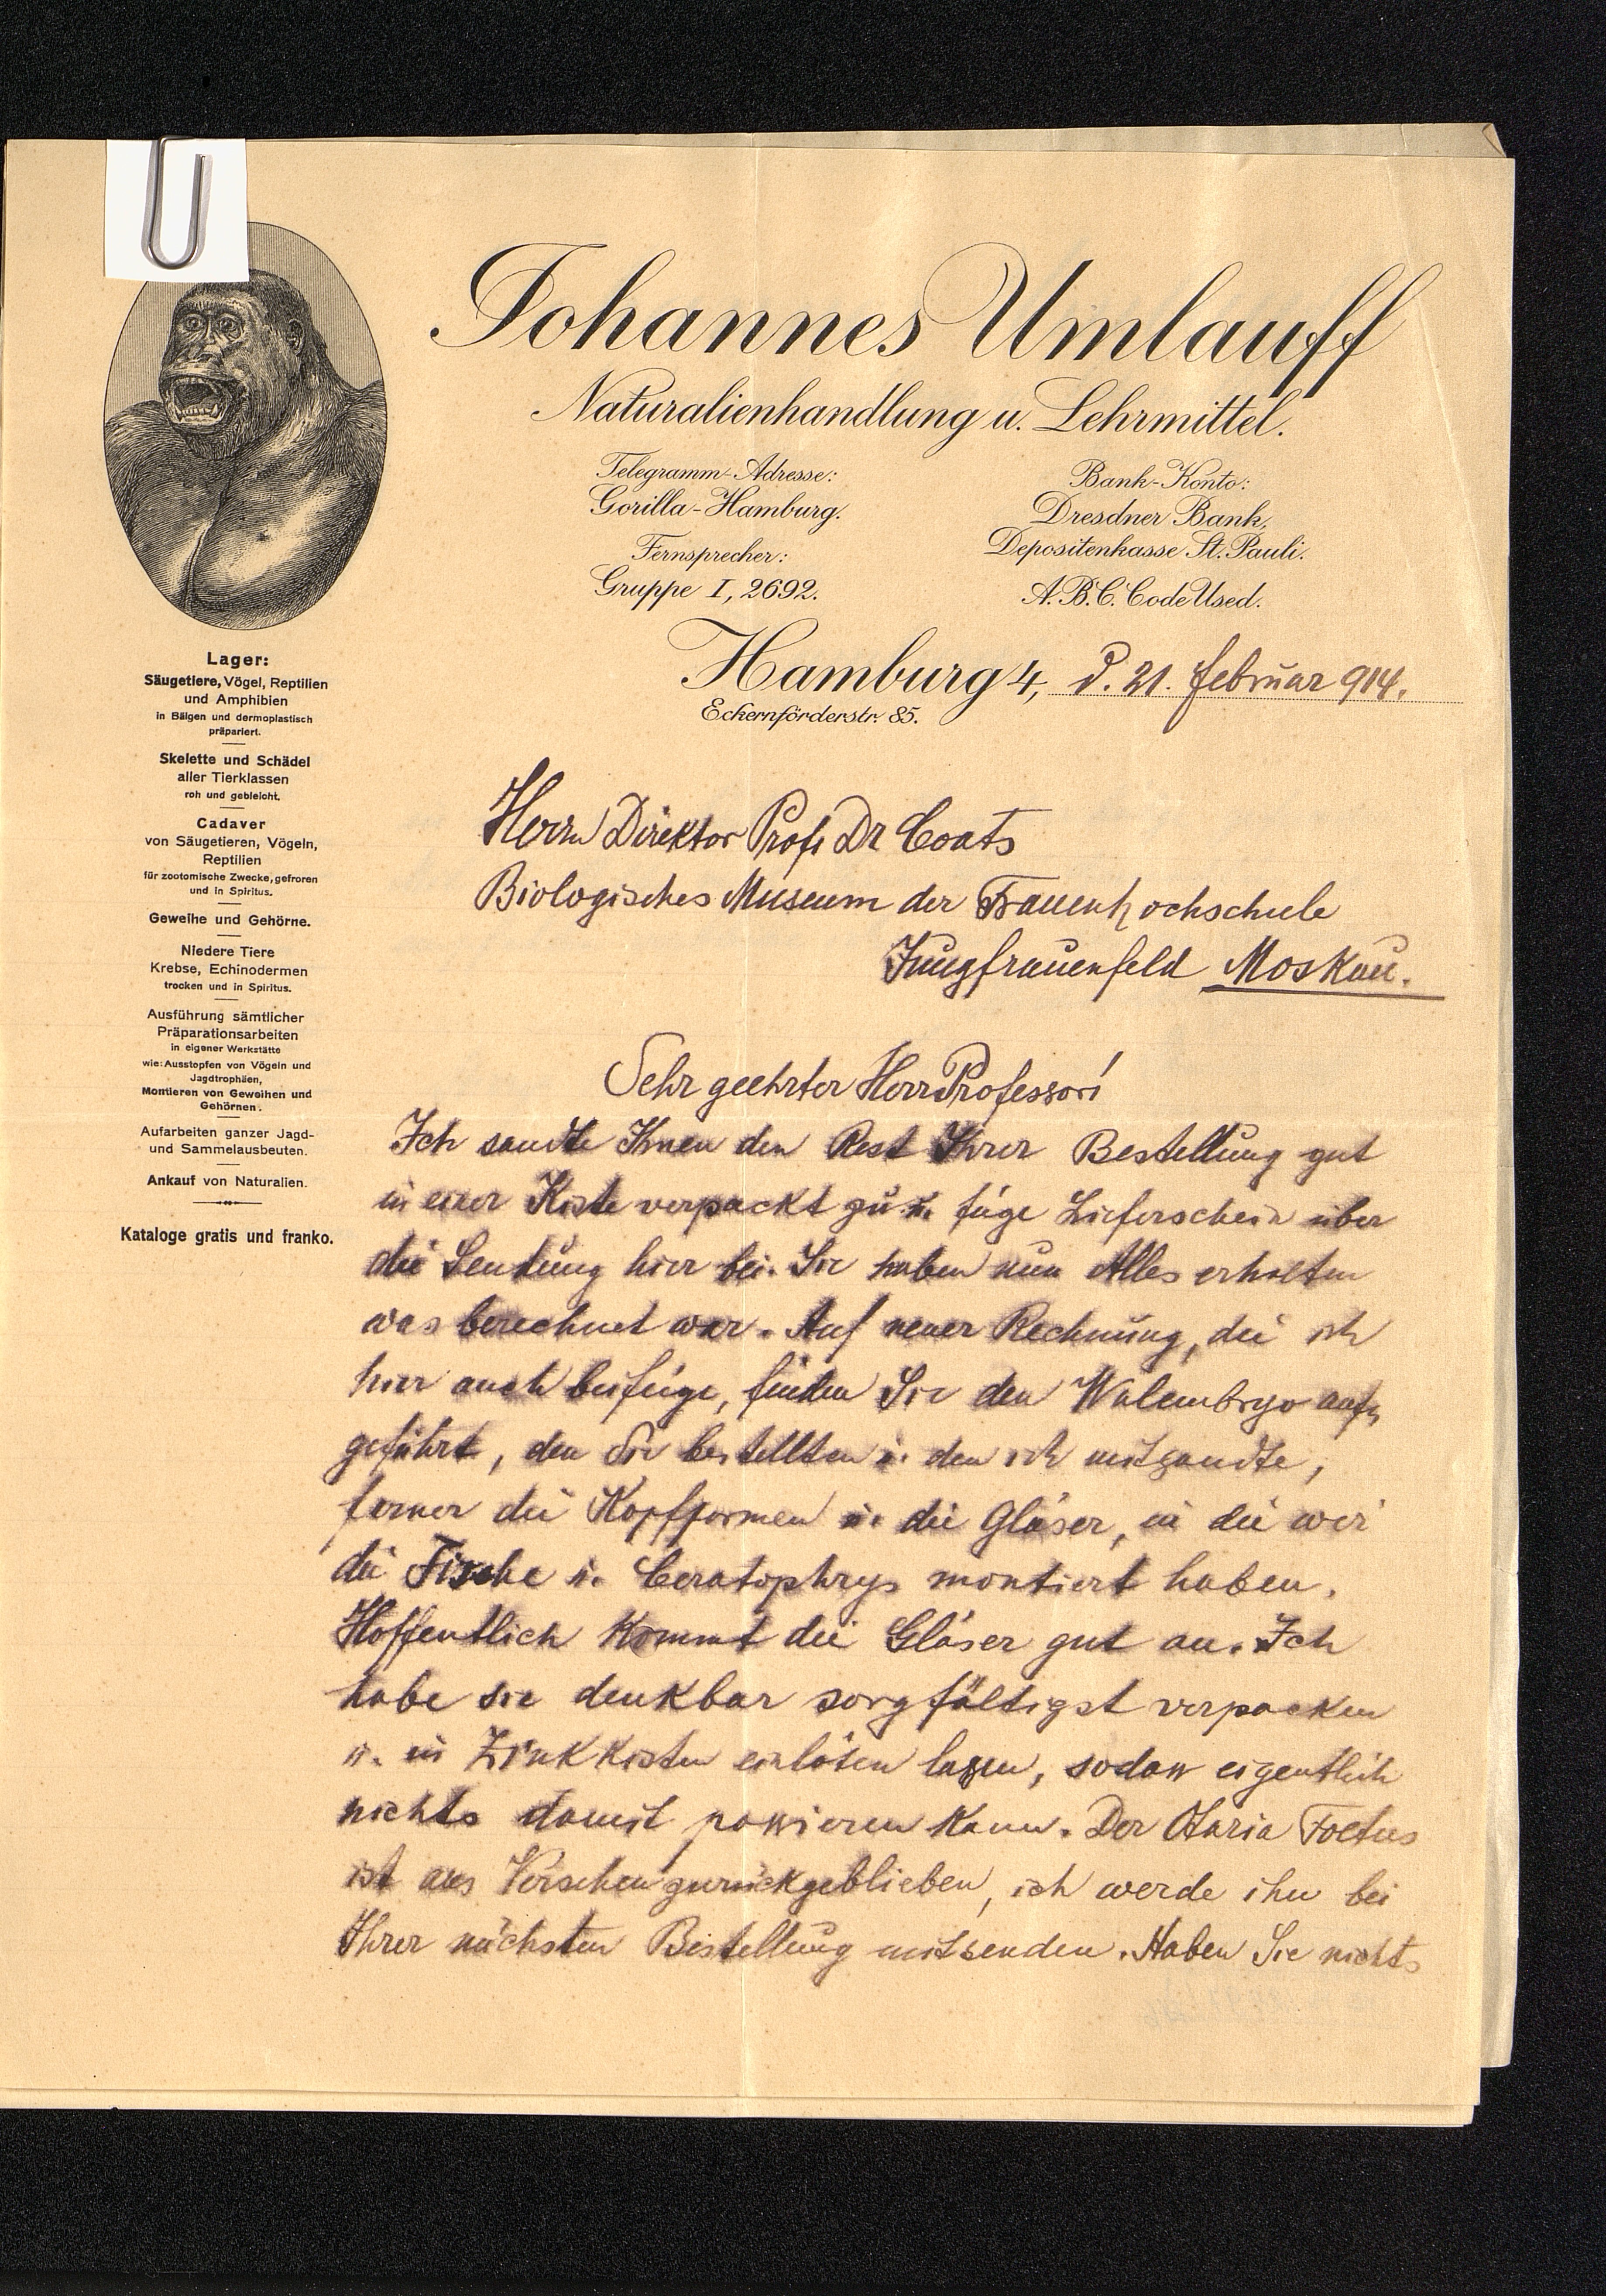 Johannes Umlauff
Naturalienhandlung u. Lehrmittel.
Telegramm-Adresse:
Gorilla-Hamburg.
Fernsprecher:
Gruppe I, 2692.
Bank-Konto:
Dresdner Bank,
Depositenkasse St. Pauli.
A.B.C. Code Used.
Hamburg 4, d. 21. Februar 914.
Eckernförderstr. 85.
Lager:
Säugetiere, Vögel, Reptilien
und Amphibien
in Bälgen und dermoplastisch
präpariert.
Skelette und Schädel
aller Tierklassen
roh und gebleicht.
Cadaver
von Säugetieren, Vögeln,
Reptilien
für zootomische Zwecke, gefroren
und in Spiritus.
Geweihe und Gehörne.
Niedere Tiere
Krebse, Echinodermen
trocken und in Spiritus.
Ausführung sämtlicher
Präparationsarbeiten
in eigener Werkstätte
wie: Ausstopfen von Vögeln und
Jagdtrophäen,
Montieren von Geweihen und
Gehörnen.
Aufarbeiten ganzer Jagd-
und Sammelausbeuten.
Ankauf von Naturalien.
Kataloge gratis und franko.
Herrn Direktor Prof. Dr Coats
Biologisches Museum der Frauenhochschule
Jungfrauenfeld Moskau.
Sehr geehrter Herr Professor!
Ich sandte Ihnen den Rest Ihrer Bestellung gut
in einer Kiste verpackt zu u. füge Lieferschein über
die Sendung hier bei. Sie haben nun Alles erhalten
was berechnet war. Auf neuer Rechnung, die ich
hier auch beifüge, finden Sie den Walembryo auf-
geführt, den Sie bestellten u. den ich mitsandte,
ferner die Kopfformen u. die Gläser, in die wir
die Fische u. Ceratophrys montiert haben.
Hoffentlich kommt die Gläser gut an. Ich
habe sie denkbar sorgfältigst verpacken
u. in Zinkkisten einlöten lassen, sodass eigentlich
nichts damit passieren kann. Der Otaria Foetus
ist aus Versehen zurückgeblieben, ich werde ihn bei
Ihrer nächsten Bestellung mitsenden. Haben Sie nichts